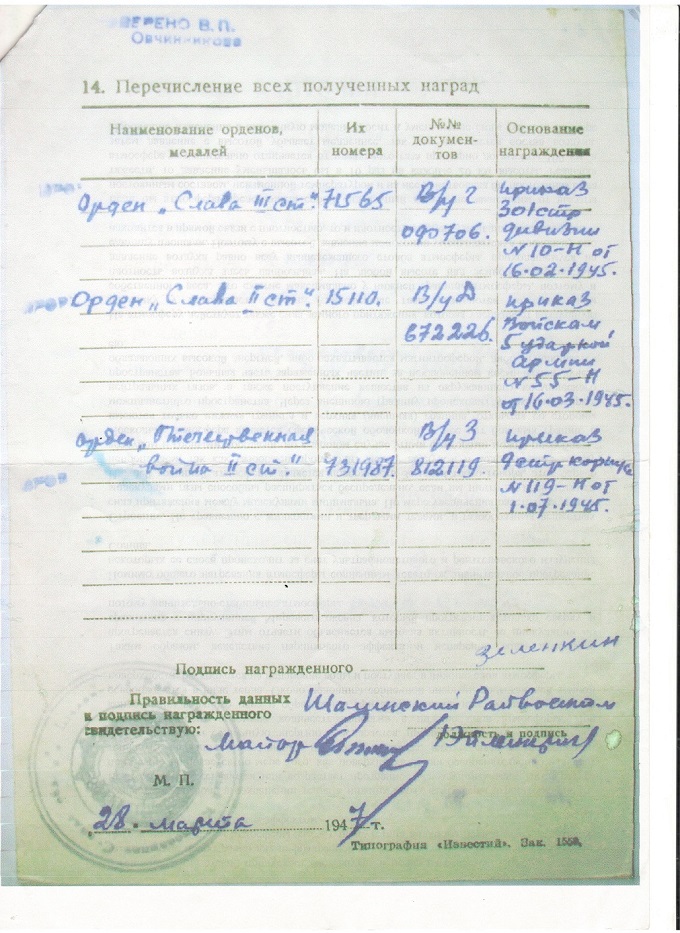 ВЕРЕНО В. П.
Овчинникова
14. Перечисление всех полученных наград
Наименование орденов, медалей
Их номера
№№ документов
Основание награждения
Орден „Слава III ст." 71565 В/уг приказ
090706. 301 стр
дивизии
№ 10-Н от
16.02.1945.
Орден „Слава II ст." 15110. В/уД приказ
672226. Войскам
5 ударной
Армии
№ 55-Н
от 16.03.1945.
орден „Отечественная В/у З приказ
война II ст." 731987. 812119. 9 стр корпуса
№ 119-Н от
1.07.1945.
зеленкин
Подпись награжденного
Правильность данных Шалинский Райвоенком
и подпись награжденного
свидетельствую: майор
должность и подпись
М. П.
28 марта 1947 г.
Типография «Известий». Зак. 1550.